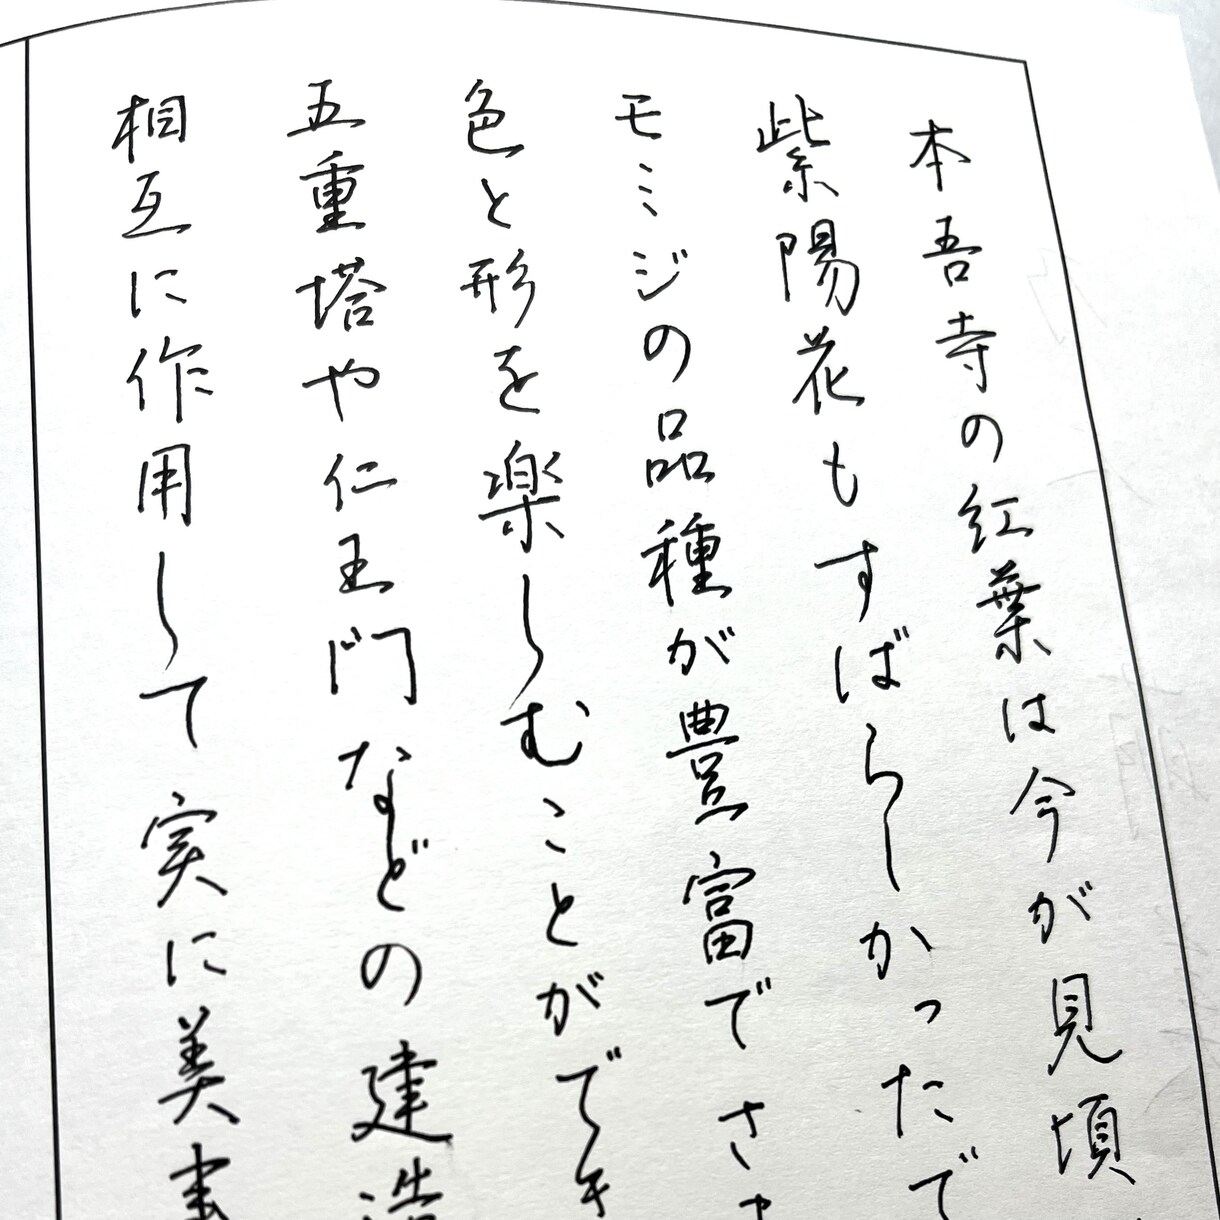 本吾寺の紅葉は今が見頃
紫陽花もすばらしかったで
モミジの品種が豊富でさ
色と形を楽しむことができ
五重塔や仁王門などの建造
相互に作用して実に美